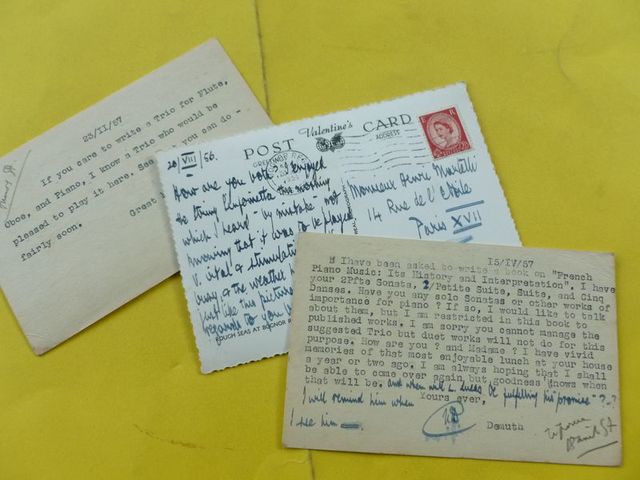 23/II/57
If you care to write a Trio for Flute,
Oboe, and Piano, I know a Trio who would be
pleased to play it here. See you can do -
fairly soon.
Great
POST Valentine's CARD
ADDRESS
20/VIII/56.
How are you both? I enjoyed
the String Sinfonietta this morning
which I heard - by mistake - not
knowing that it was to be played
V. vital & stimulating
& the weather
like the picture
regards to you
ROUGH SEAS AT BOGNOR
Monsieur Henri Martelli
14 Rue de l'Etoile
Paris XVII
15/IV/57
I have been asked to write a book on "French
Piano Music: Its History and Interpretation". I have
your 2Pfte Sonata, 2/Petite Suite, Suite, and Cinq
Danses. Have you any solo Sonatas or other works of
importance for piano ? If so, I would like to talk
about them, but I am restricted in this book to
published works. I am sorry you cannot manage the
suggested Trio but duet works will not do for this
purpose. How are you ? and Madame ? I have vivid
memories of that most enjoyable lunch at your house
a year or two ago. I am always hoping that I shall
be able to come over again but goodness knows when
that will be. and when will fulfilling his promise"?-?
I will remind him when Yours ever,
I see him
ND
Demuth